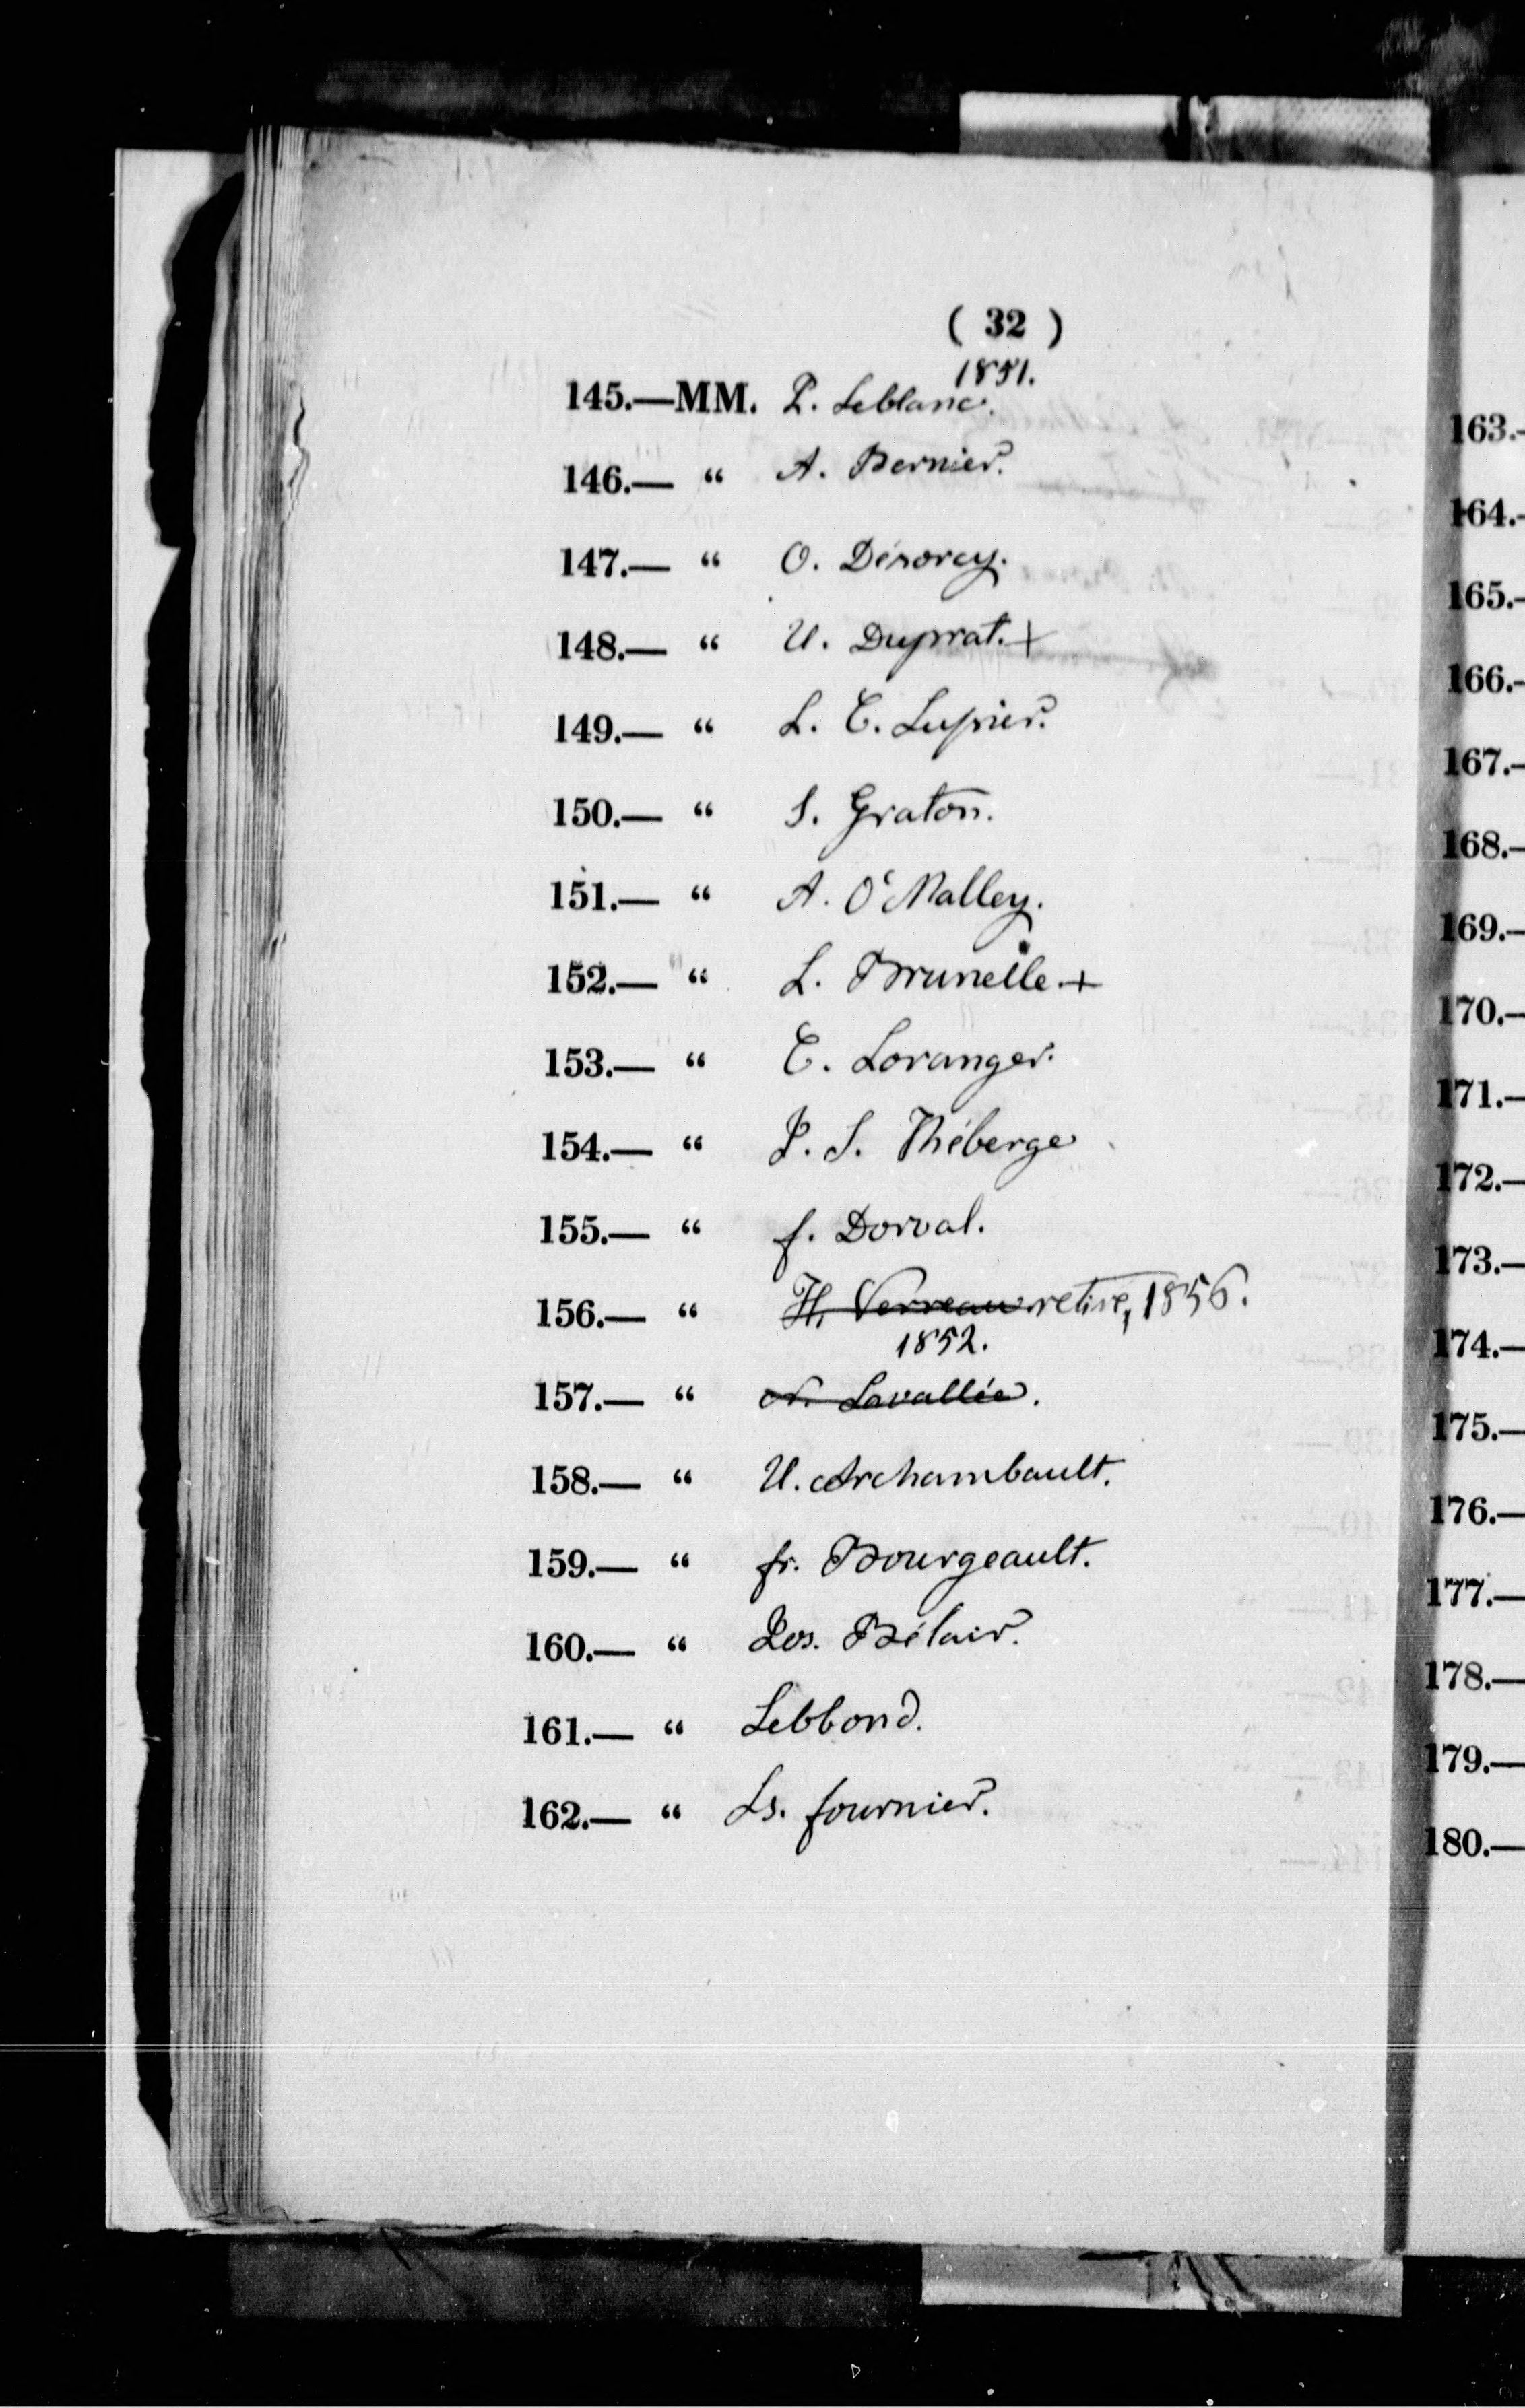 ( 32 )
1851.
145.—MM. P. Leblanc.
146.— “ A. Bernier.
147.— “ O. Désorcy.
148.— “ U. Duprat. +
149.— “ L. E. Lupier.
150.— “ S. Graton.
151.— “ A. O'Malley.
152.— “ L. Brunelle +
153.— “ C. Loranger.
154.— “ J. S. Théberge
155.— “ f. Dorval.
156.— “ H. Verreau retiré, 1856.
1852.
157.— “ N. Lavallée.
158.— “ U. Archambault.
159.— “ fr. Bourgeault.
160.— “ Jos. Bélair.
161.— “ Leblond.
162.— “ Ls. fournier.
163.-
164.-
165.-
166.-
167.-
168.-
169.-
170.-
171.—
172.—
173.—
174.—
175.—
176.—
177.—
178.—
179.—
180.—